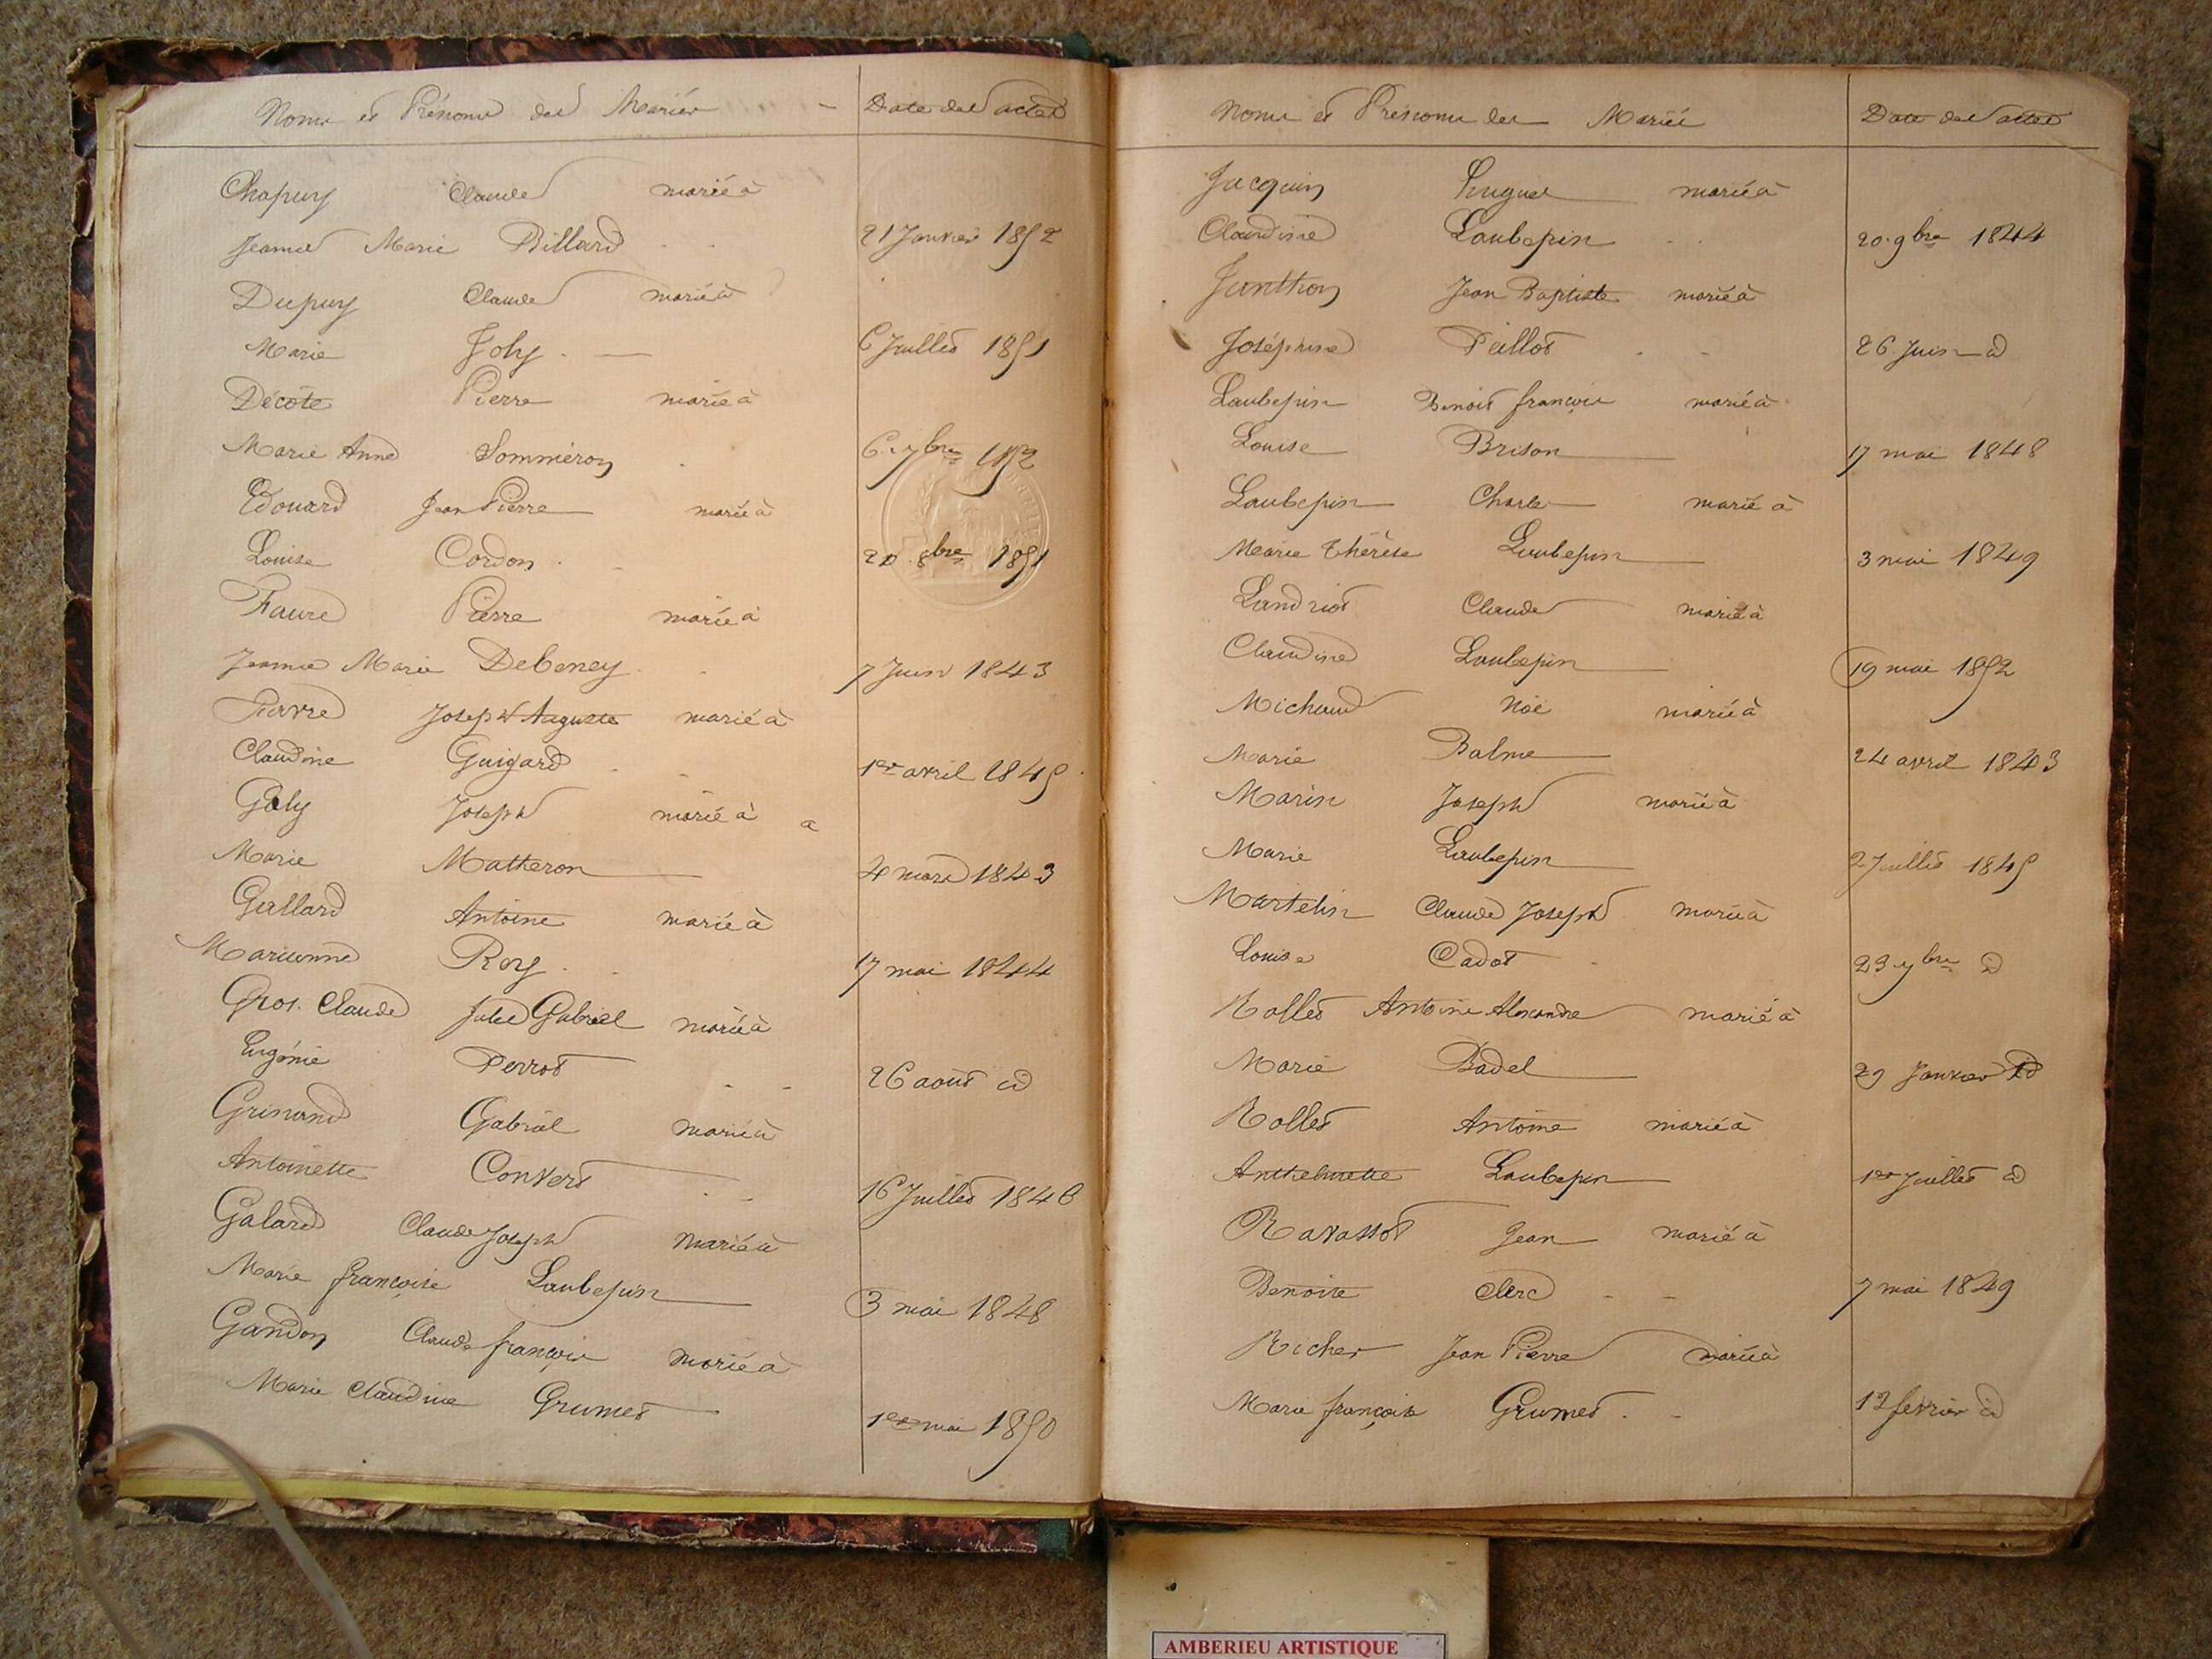 Noms et Prénoms des Mariés
Date des actes
Chapuy Claude marié à
Jeanne Marie Billard 21 Janvier 1852
Dupuy Claude marié à
Marie Joly 6 Juillet 1851
Décôte Pierre marié à
Marie Anne Sommeron 6. 7bre 1852
Edouard Jean Pierre marié à
Louise Cordon 20. 8bre 1851
Faure Pierre marié à
Jeanne Marie Debeney 7 Juin 1843
Joseph Auguste marié à
Claudine Guigard 1er avril 1845
Galy Joseph marié à
Marie Matheron 4 mars 1843
Gallard Antoine marié à
Marianne Roy 17 mai 1844
Gros. Claude Jules Gabriel marié à
Eugénie Perrot 26 aout id
Grinand Gabriel marié à
Antoinette Convert 16 Juillet 1846
Galard Claude Joseph marié à
Marie françoise Laubepin 3 mai 1848
Gandon Claude françois marié à
Marie Claudine Grumet 1er mai 1850
Noms et Prénoms des Mariés
Date des actes
Jacquin Hugues marié à
Claudine Laubepin 20. 9bre 1844
Janthon Jean Baptiste marié à
Joséphine Paillot 26 Juin id
Laubepin Benoit françois marié à
Louise Brison 17 mai 1848
Laubepin Charles marié à
Marie Thérèse Laubepin 3 mai 1849
Landriot Claude marié à
Claudine Laubepin 19 mai 1852
Michaud Noë marié à
Marie Balme 24 avril 1843
Marin Joseph marié à
Marie Laubepin 2 Juillet 1845
Martelin Claude Joseph marié à
Louise Cadot 23 id
Rollet Antoine Alexandre marié à
Marie Badel 29 Janvier id
Rollet Antoine marié à
Anthelmette Laubepin 1er Juillet id
Ravassot Jean marié à
Benoite Clerc 7 mai 1849
Richer Jean Pierre marié à
Marie françoise Grumet 12 fevrier id
AMBERIEU ARTISTIQUE